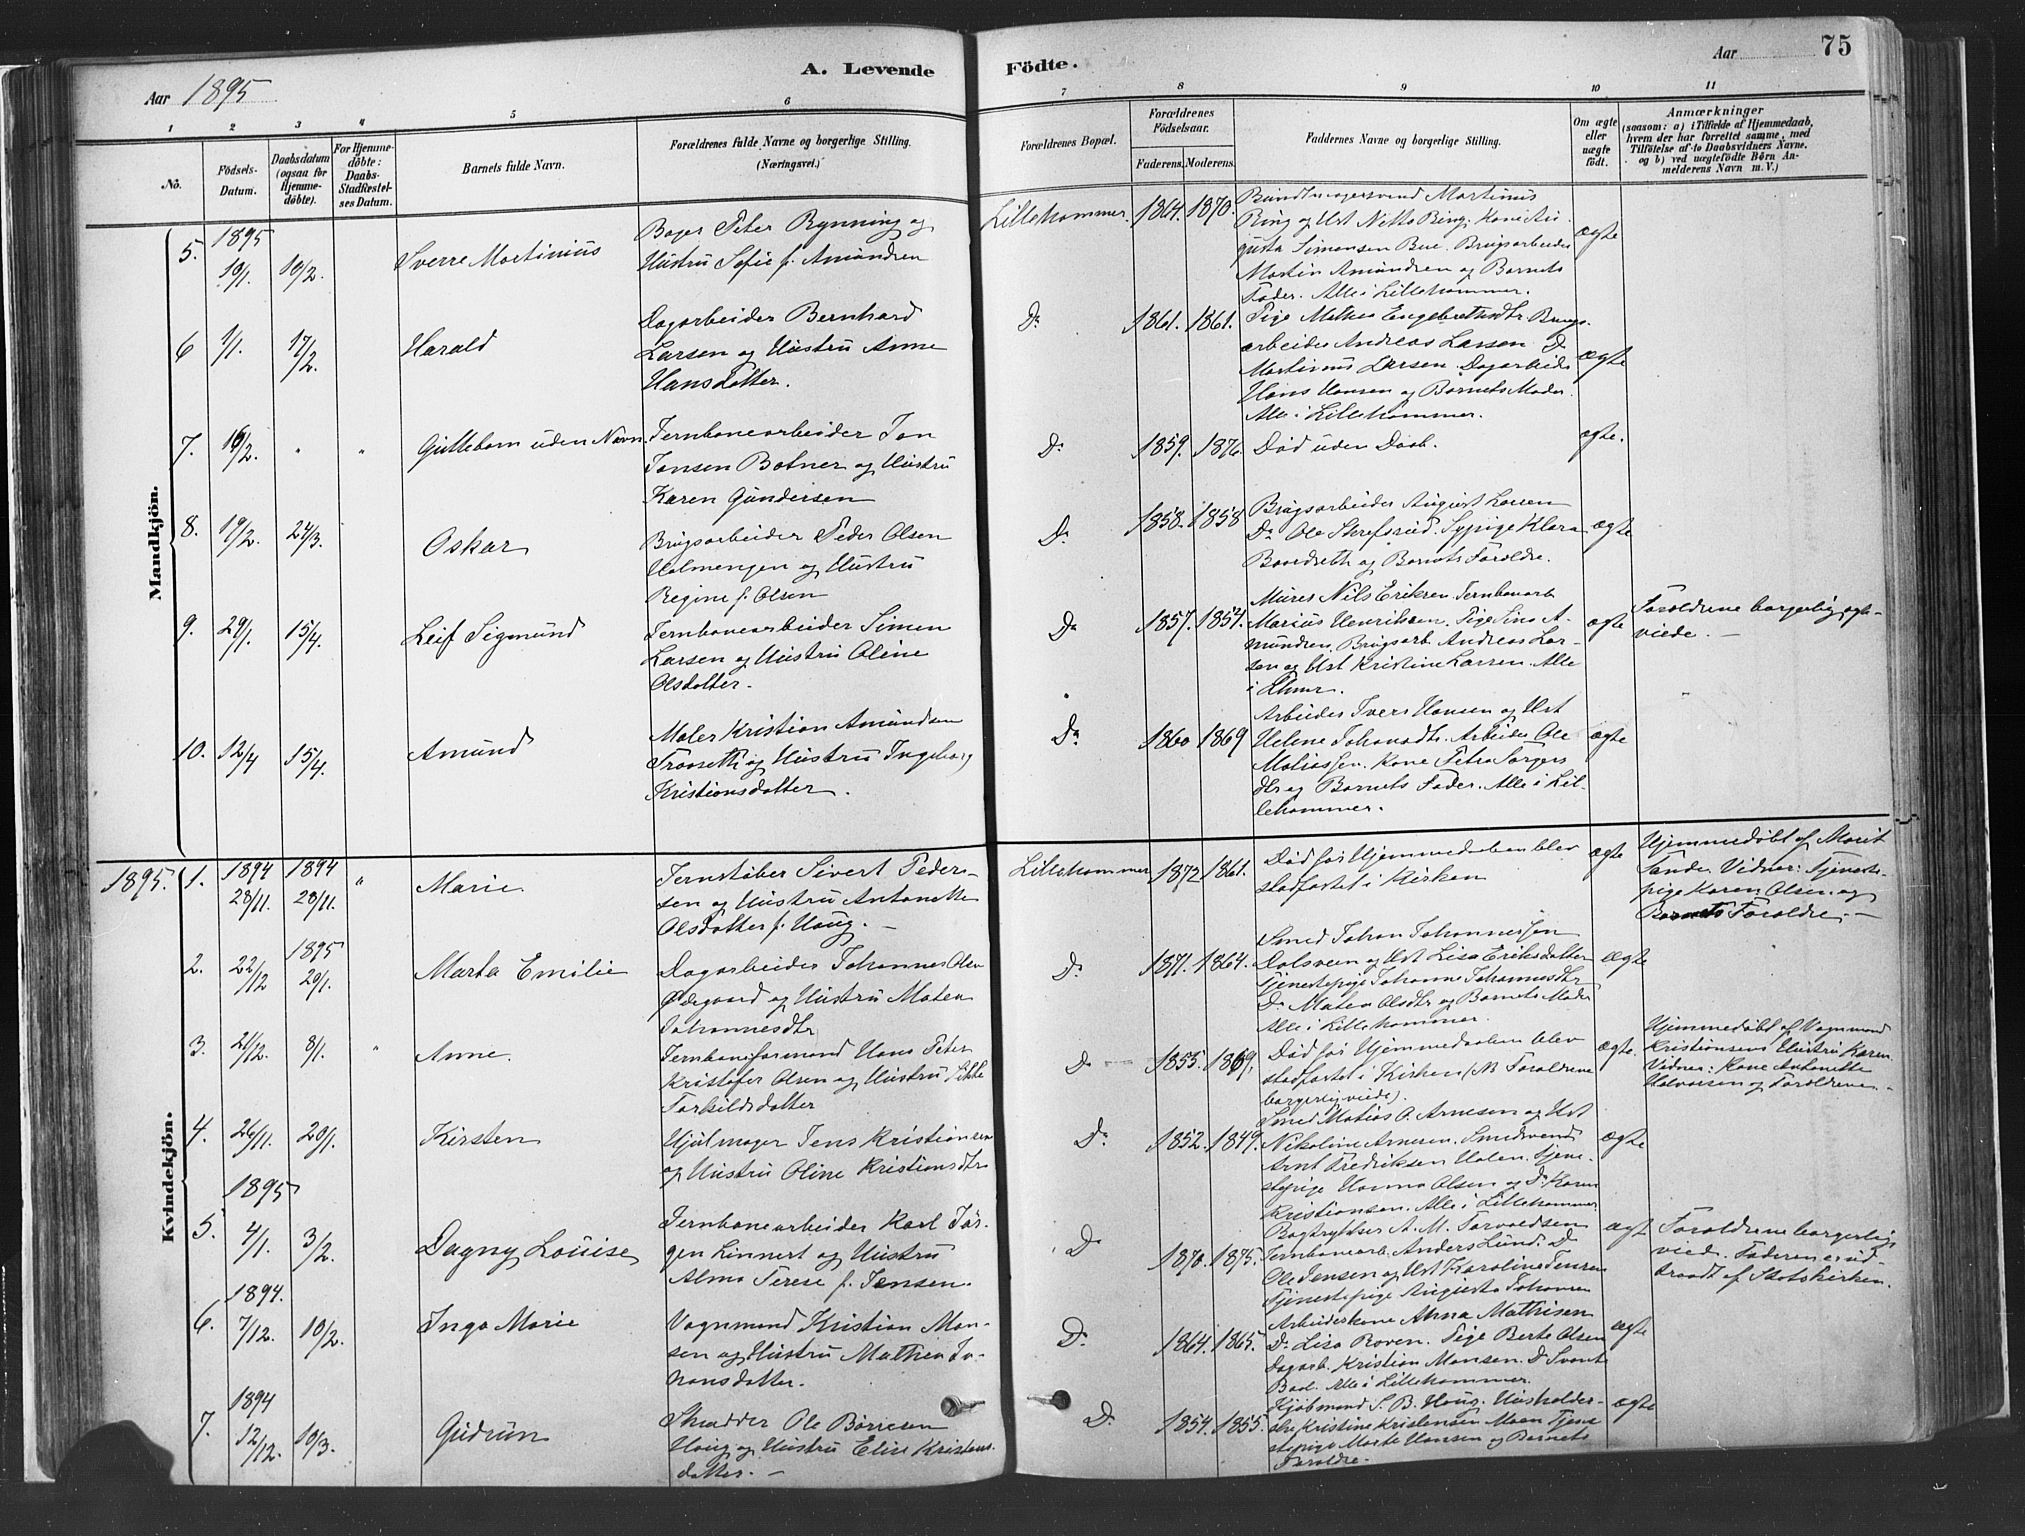 Aar 1895
A. Levende
Födte.
Aar
75
1 2 3 4 5 6 7 8 9 10 11
No.
Födsels-Datum.
Daabsdatum (ogsaa for Hjemme-döbte).
For Hjemme-döbte: Daabs-Stadfæstel-ses Datum.
Barnets fulde Navn.
Forældrenes fulde Navne og borgerlige Stilling. (Næringsvei.)
Forældrenes Bopæl.
Forældrenes Födselsaar.
Faderens. Moderens.
Faddernes Navne og borgerlige Stilling.
Om ægte eller uægte födt.
Anmærkninger
(saasom: a) i Tilfælde af Hjemmedaab,
hvem der har forrettet samme, med
Tilföielse af to Daabsvidners Navne.
og b) ved uægtefödte Börn An-
melderens Navn m. V.)
Mandkjön.
5. 1895 10/1. 10/2. Sverre Martinius
Bager Peter Rynning og
Hustru Sofie f. Amundsen
Lillehammer. 1864. 1870.
Bundtmagersvend Martinus
Ring og Hst Netta Ring. Kone Au-
gusta Simensen Bue. Brugsarbeider
Martin Amundsen og Barnets
Fader. Alle i Lillehammer.
ægte
6 1/1. 17/2. Harald
Dagarbeider Bernhard
Larsen og Hustru Anne
Hansdatter.
Do 1861. 1861.
Pige Mathea Engebretsdtr. Brugs-
arbeider Andreas Larsen Do
Martinus Larsen. Dagarbeider
Hans Hansen og Barnets Moder.
Alle i Lillehammer.
ægte
7. 16/2. " " Guttebarn uden Navn.
Jernbanearbeider Jon
Jonsen Botner og Hustru
Karen Gundersen
Do 1859. 1876.
Död uden Daab.
ægte.
8. 19/2. 24/3. Oskar
Brugsarbeider Peder Olsen
Holmengen og Hustru
Regine f. Olsen
Do 1858. 1858
Brugsarbeider August Larsen
Do Ole Skrefsrud. Sypige Klara
og Barnets Forældre.
ægte
9. 29/1. 15/4. Leif Sigmund
Jernbanearbeider Simen
Larsen og Hustru Oline
Olsdatter.
Do 1857. 1854.
Murer Nils Eriksen. Jernbanearb
Marius Henriksen. Pige Sina A-
mundsen. Brugsarb. Andreas Lar-
sen og Hst Kristine Larsen. Alle
i Lhmr.
ægte
Forældrene borgerlig ægte-
viede.
10. 12/4 15/4. Amund
Maler Kristian Amundsen
og Hustru Ingeborg
Kristiansdatter.
Do 1860 1869
Arbeider Iver Hansen og Hst
Helene Johansdtr. Arbeider Ole
Matiassen. Kone Petra Jørgens
dtr og Barnets Fader. Alle i Lil-
lehammer.
ægte
Kvindekjön.
1895. 1. 1894 28/11. 1894 28/11. " Marie
Jernstöber Sivert Peder-
sen og Hustru Antonette
Olsdatter f. Haug.
Lillehammer 1872 1861.
Död før Hjemmedaaben blev
stadfæstet i Kirken
ægte
Hjemmedöbt af Marit
Sande. Vidner: Tjeneste-
pige Karen Olsen og
Barnets Forældre.
2. 22/12 1895 29/1. Marta Emilie
Dagarbeider Johannes Olsen
Ødegaard og Hustru Maten
Johannesdtr
Do 1871. 1864.
Smed Johan Johannessen
Dalsveen og Hst Lisa Eriksdatter
Tjenestepige Johanne Johannesdtr
Do Maten Olsdtr og Barnets Moder
Alle i Lillehammer.
ægte
3. 21/12. 8/1. " Anne.
Jernbaneformand Hans Peter
Kristofer Olsen og Hustru
Torkildsdatter
Do 1855. 1869.
Död før Hjemmedaaben blev
stadfæstet i Kirken (NB Forældrene
borgerlig viede).
ægte.
Hjemmedöbt af Vognmand
Kristiansens Hustru Karen
Vidner: Kone Antonette
Halvorsen og Forældrene.
4. 26/11. 20/1. Kirsten
Hjulmager Jens Kristiansen
og Hustru Oline Kristiansdtr
Do 1852. 1849.
Smed Matias O. Arnesen og Hst
Nikoline Arnesen. Smedsvend
Arnt Fredriksen Holen. Tjene-
stepige Hanna Olsen og Do Karen
Kristiansen. Alle i Lillehammer
ægte
5. 1895 4/1. 3/2. Dagny Louise
Jernbanearbeider Karl Jör-
gen Linnert og Hustru
Alma Terese f. Jensen.
Do 1870. 1875.
Bogtrykker A. M. Torvoldsen
Jernbanearb. Anders Lund. Do
Ole Jensen og Hst Karoline Jensen
Tjenestepige Augusta Johansen
ægte
Forældrene borgerlig
viede. Faderen er ud-
traadt af Statskirken.
6. 1894. 7/12. 10/2. Inga Marie
Vognmand Kristian Mon-
sen og Hustru Mathea Jo-
hansdatter.
Do 1864. 1865.
Arbeiderkone Anna Mathisen
Do Lisa Roven. Pige Berte Olsen
Dagarb. Kristian Monsen. Do
Alle i Lillehammer.
ægte
7. 1894 12/12. 10/3. Gudrun
Skrædder Ole Børresen
Haug og Hustru Elise Kristens
datter.
Do 1854. 1855.
Kjöbmand S. B. Haug. Husholder-
ske Kristine Kristensen Moen Tjene
stepige Marte Hansen og Barnets
Forældre.
ægte